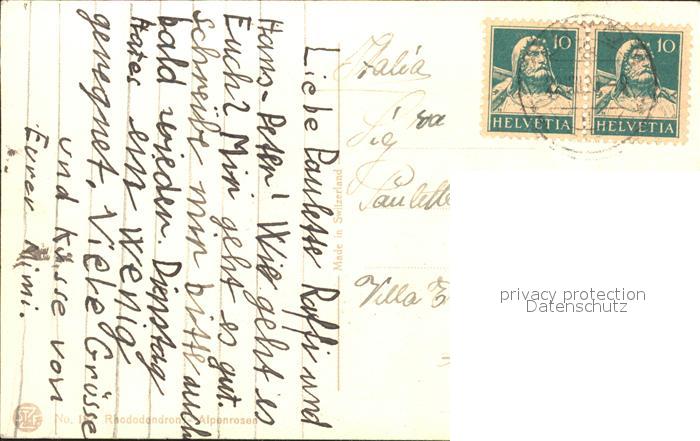 Liebe Paulette Raffi und
Hans-Peter! Wie geht es
Euch? Mir geht es gut.
schreibe mir bitte auch
bald wieder. Dienstag
hates ein wenig
geregnet. Viele Grüsse
und Küsse von
Eurer Mimi.
Italia
Sig ra
Paulette
Villa
Made in Switzerland
No. Rhododendron - Alpenrosen
10
HELVETIA
10
HELVETIA
privacy protection
Datenschutz